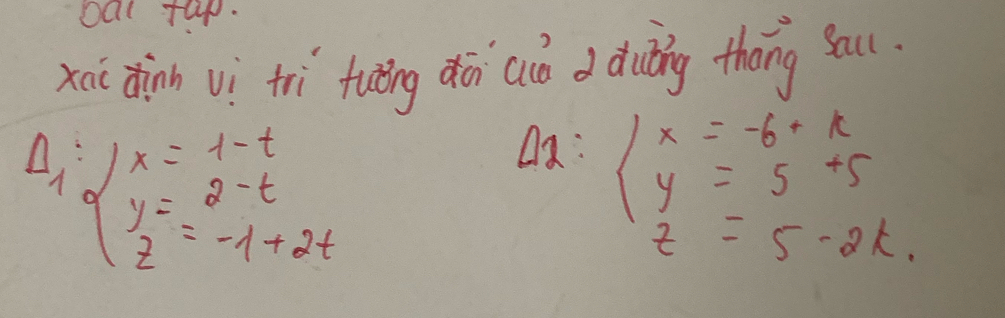 bài tập.
xác định vị trí tương đối của 2 đường thẳng sau.
Δ1: { x = 1-t Δ2: { x = -6 + k
y = 2-t y = 5 + 5
z = -1+2t z = 5-2k.